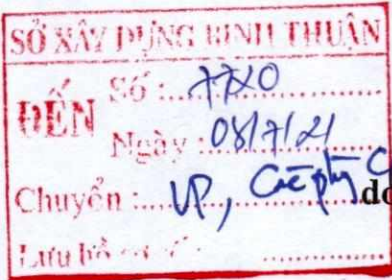 SỞ XÂY DỰNG BÌNH THUẬN
ĐẾN
Số :
Ngày : 08/7/21
Chuyển : VP, Các
Lưu hồ sơ số :